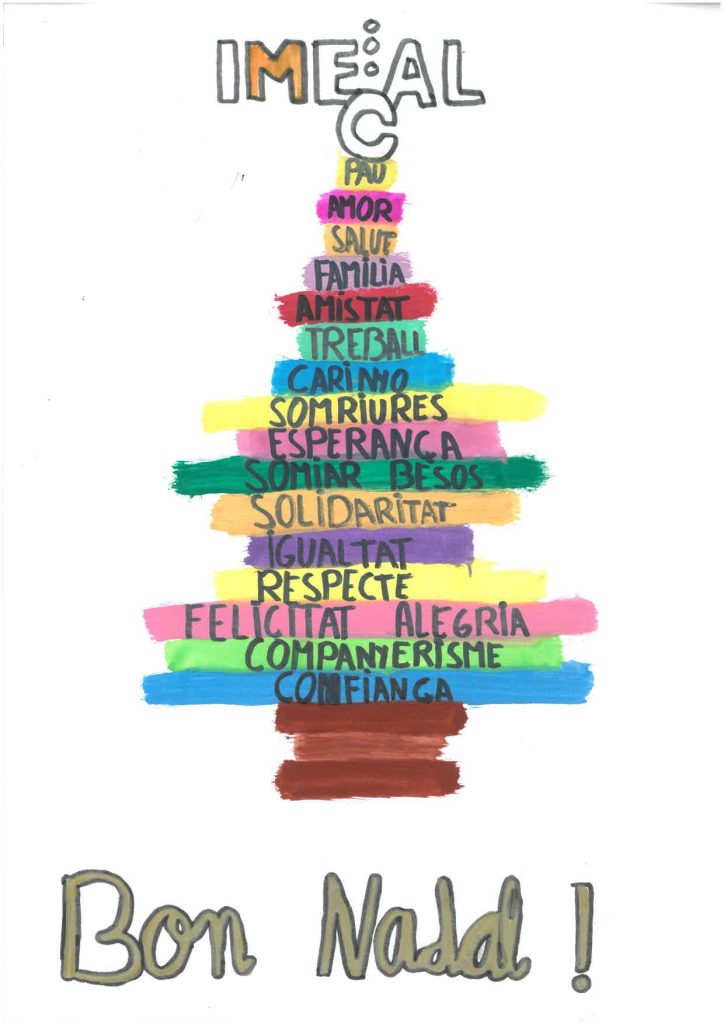 IMECAL
PAU
AMOR
SALUT
FAMÍLIA
AMISTAT
TREBALL
CARINYO
SOMRIURES
ESPERANÇA
SOMIAR BESOS
SOLIDARITAT
IGUALTAT
RESPECTE
FELICITAT ALEGRIA
COMPANYERISME
CONFIANÇA
Bon Nadal !